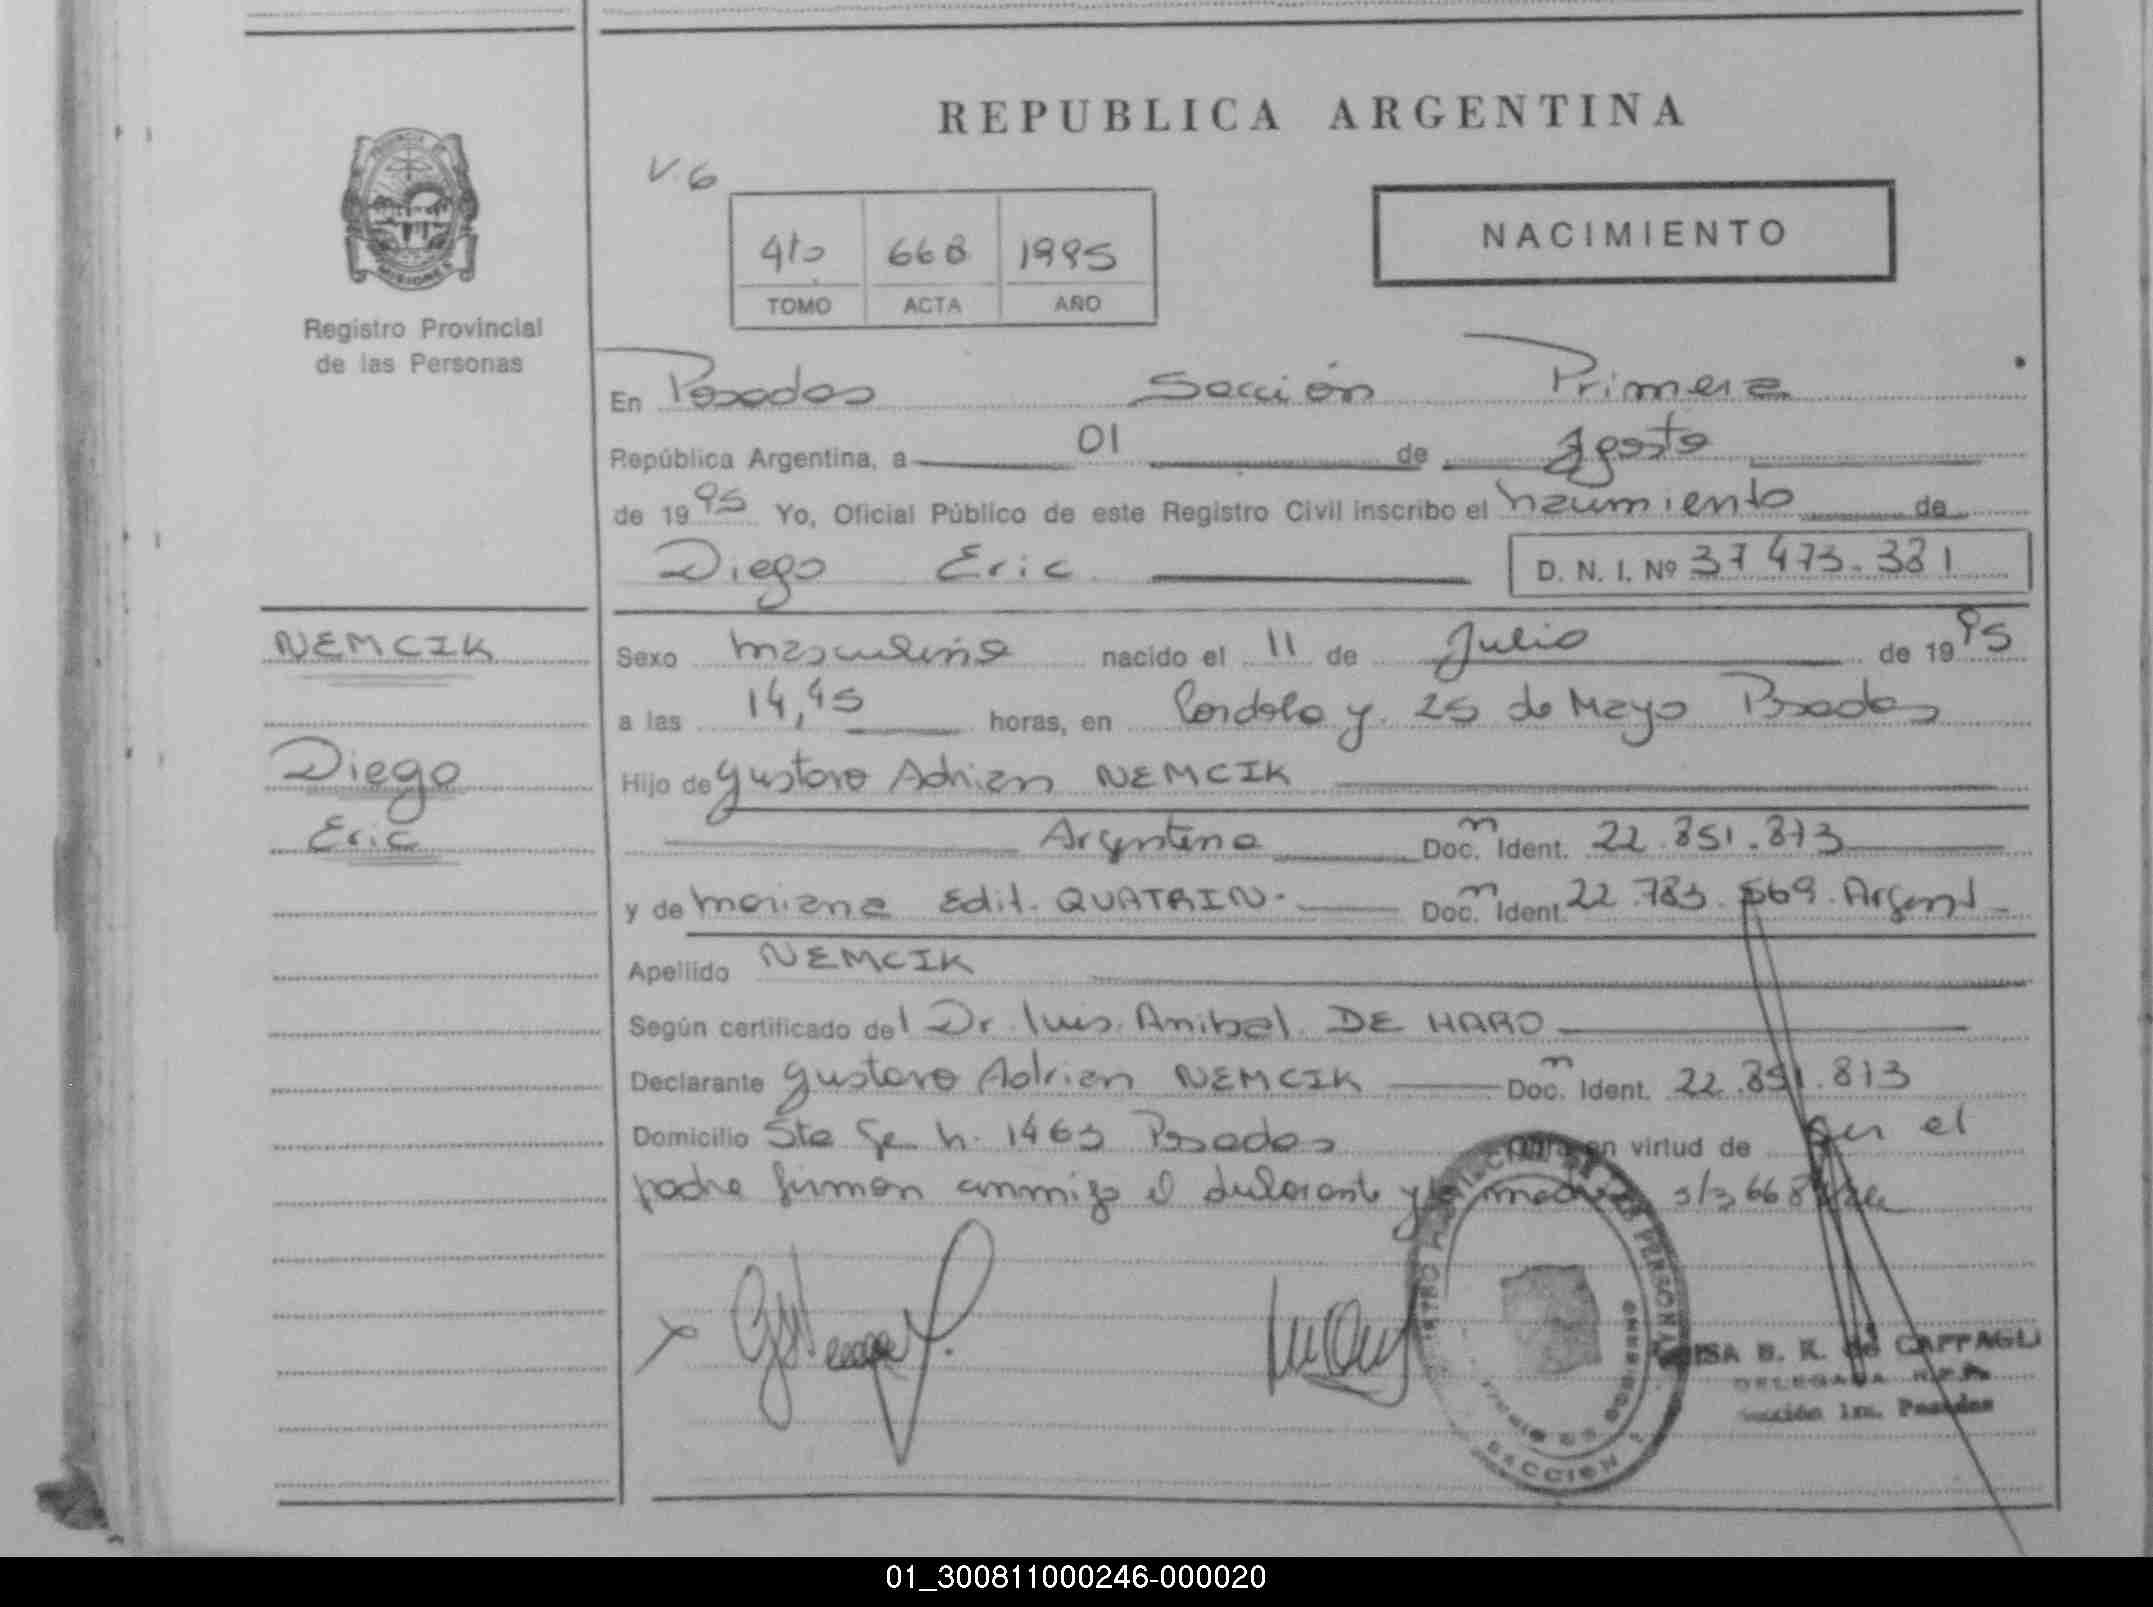 REPUBLICA ARGENTINA
V. 6
4to 668 1995
TOMO ACTA AÑO
NACIMIENTO
MISIONES
Registro Provincial
de las Personas
En Posadas Sección Primera
República Argentina, a 01 de Agosto
de 1995 Yo, Oficial Público de este Registro Civil inscribo el nacimiento de
Diego Eric D. N. I. Nº 37 473.381
NEMCIK
Diego
Eric
Sexo masculino nacido el 11 de Julio de 1995
a las 14,45 horas, en Cordoba y 25 de Mayo Posadas
Hijo de Gustavo Adrian NEMCIK
Argentino Doc. Ident. 22.851.813
y de Mariana Edit. QUATRIN. Doc. Ident. 22.783.569. Argent
Apellido NEMCIK
Según certificado del Dr. Luis Anibal DE HARO
Declarante Gustavo Adrian NEMCIK Doc. Ident. 22.851.813
Domicilio Sta Fe n. 1463 Posadas Obra en virtud de ser el
padre firman conmigo el declarante y la madre s/r 668
B. K. de CAFFAGLI
DELEGADA R.P.P.
Sección 1ra. Posadas
SECCION 1
01_300811000246-000020